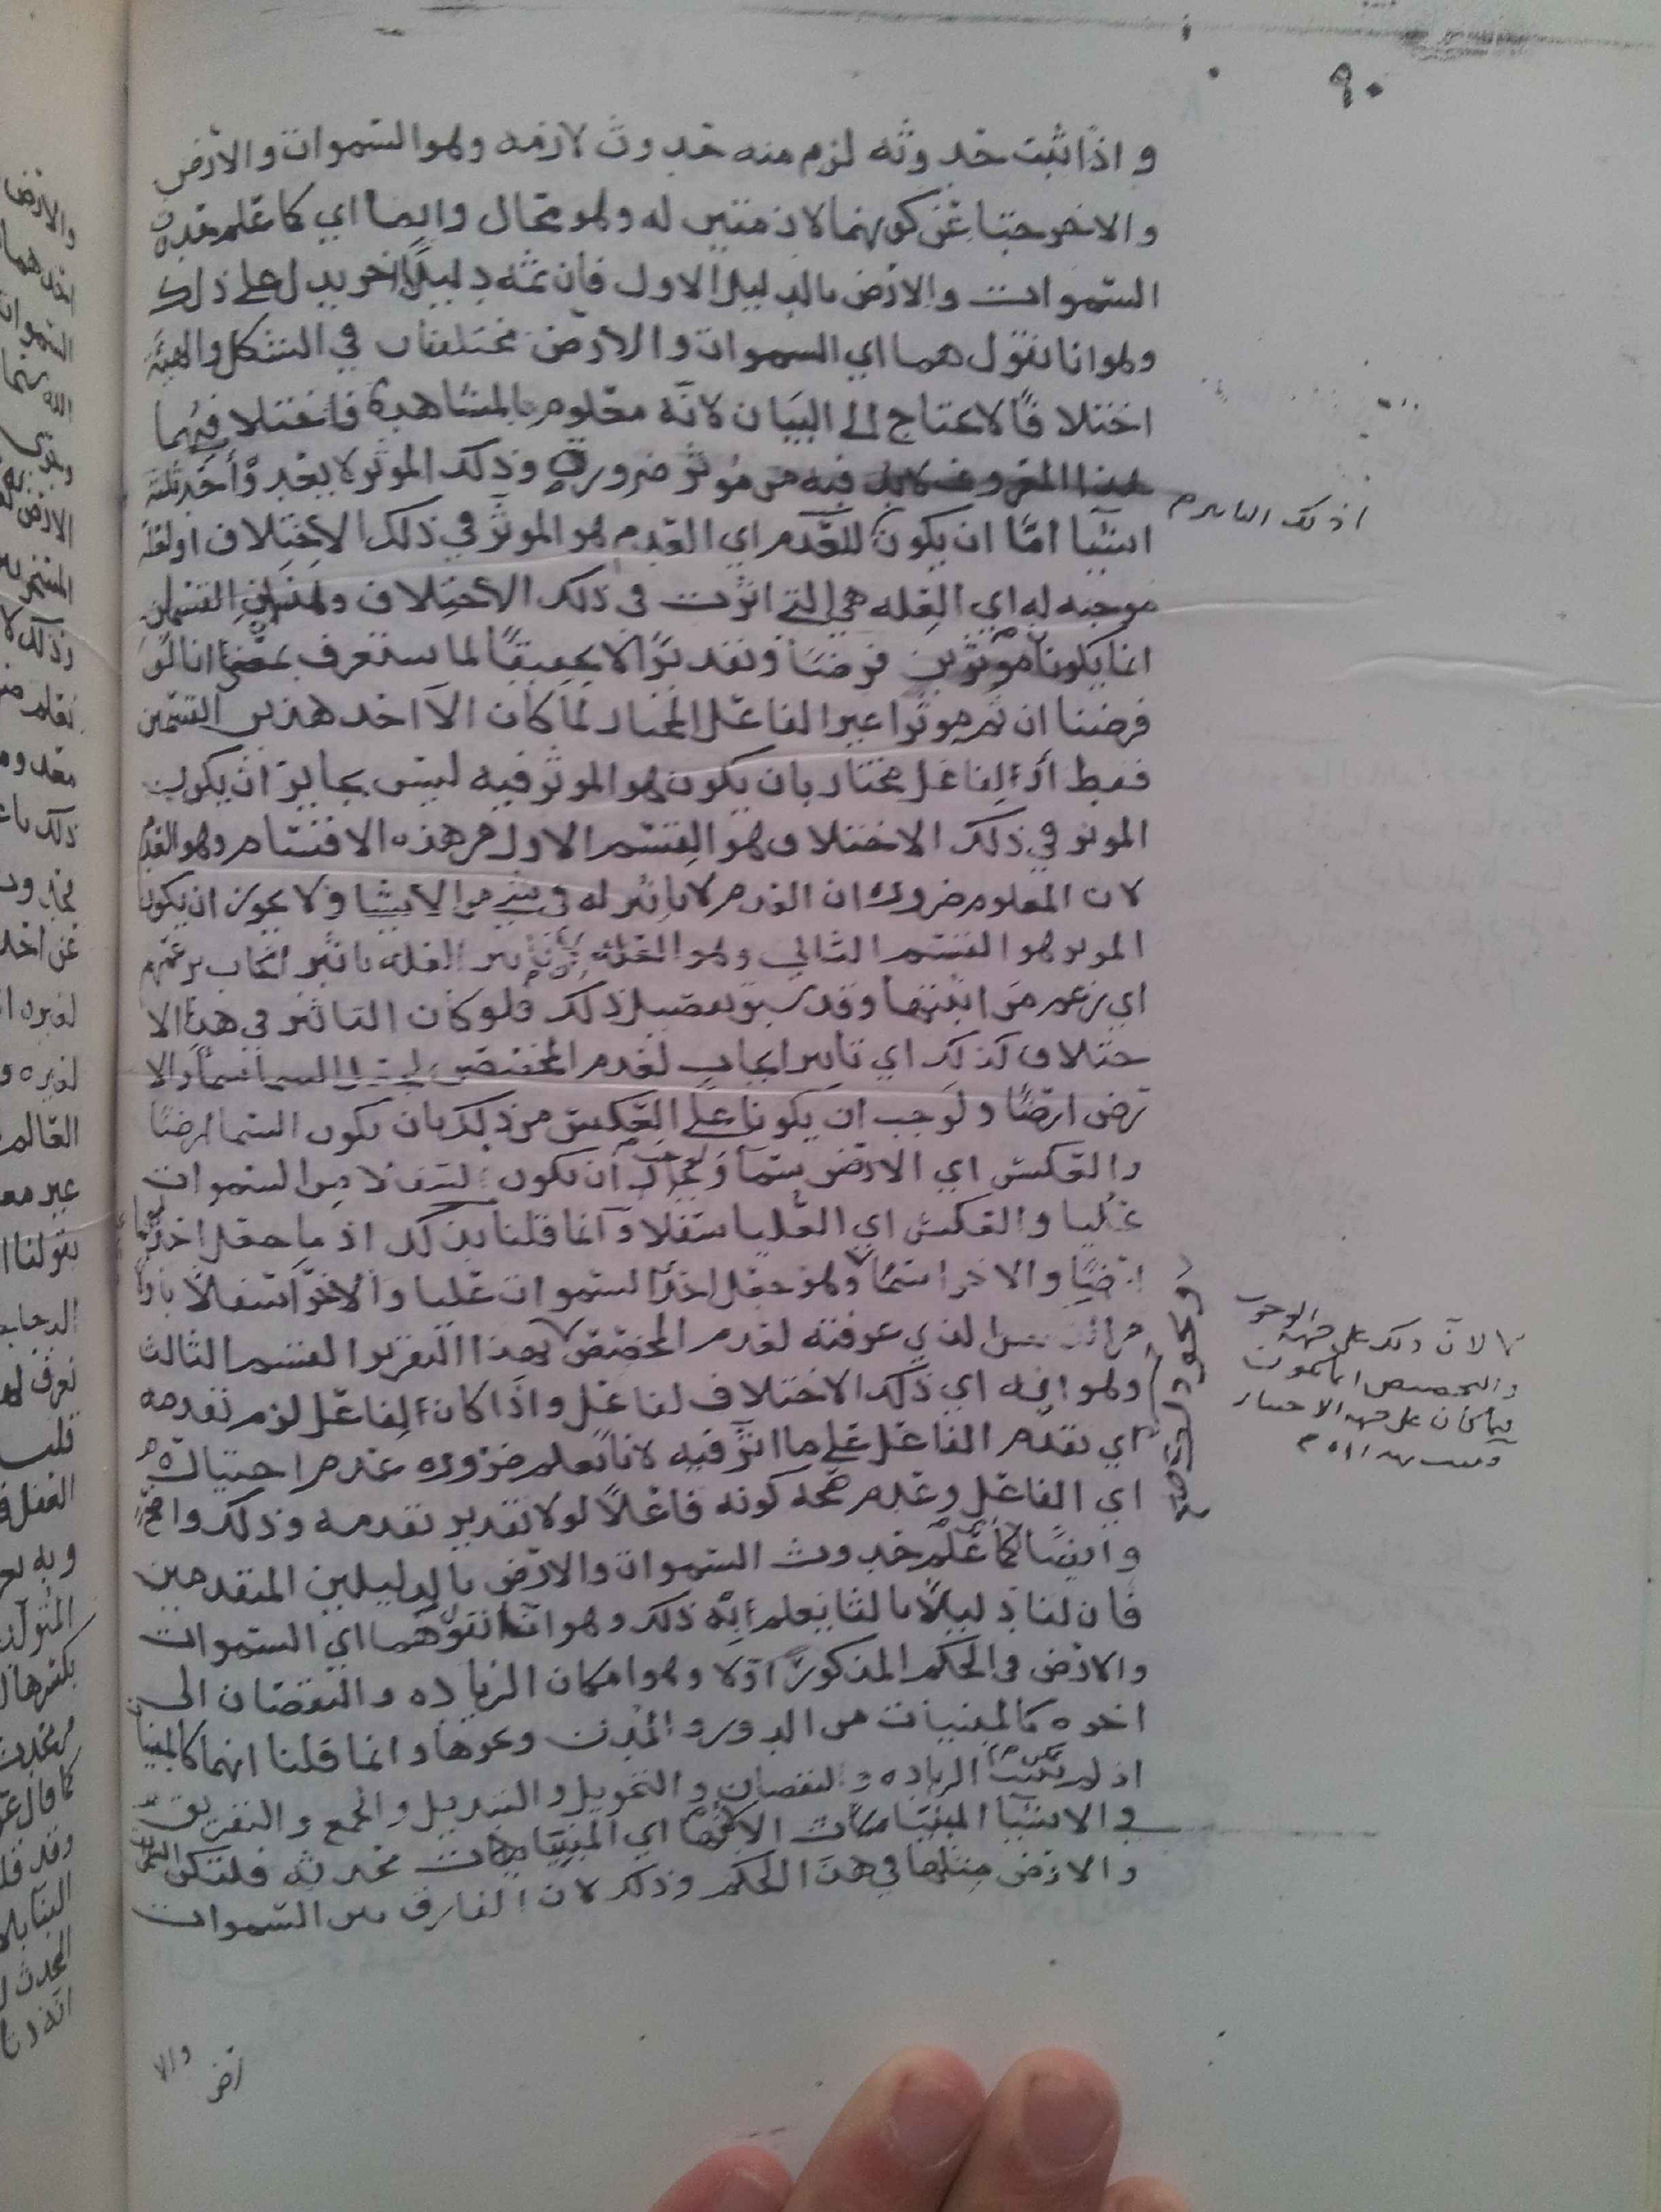 ٩٠
واذا ثبت حدوثه لزم منه حدوث لازمه وهو السموات والارض
والا خرجتا عن كونهما لازمتين له وهو محال وايضا اي كما علم حدوث
السموات والارض بالدليل الاول فان ثمه دليلًا اخر يدل على ذلك
وهو انا نقول هما اي السموات والارض مختلفتان في الشكل والهيئة
اختلافًا لا يحتاج الى البيان لانه معلوم بالمشاهدة فاختلافهما
هذا المعروف لا بد فيه من موثر ضروري وذلك الموثر لا يعدو أحد ثلثة
اشيا امّا ان يكون للعدم اي العدم هو الموثر في ذلك الاختلاف او لعله
موجبه له اي العله هي التي اثرت في ذلك الاختلاف وهذان القسمان
انما يكونا موثرين فرضًا وتقديرًا لا تحقيقًا لما ستعرف بمعنى انا لو
فرضنا ان ثم موثرا غير الفاعل المختار لما كان الا احد هذين القسمين
فقط او لفاعل مختار بان يكون هو الموثر فيه ليس بجايز ان يكون
الموثر في ذلك الاختلاف هو القسم الاول من هذه الاقسام وهو العدم
لان المعلوم ضروره ان العدم لا تاثير له في شي من الاشيا ولا يجوز ان يكون
الموثر هو القسم الثاني وهو العله لان تاثير العله تاثير ايجاب بزعمهم
اي بزعم من اثبتها وقد سبق تفصيل ذلك فلو كان التاثير في هذا الا
ختلاف كذلك اي تاثير ايجاب لعدم المخصص السما سماء والا
رض ارضًا ولوجب ان يكونا على العكس من ذلك بان يكون السما ارضًا
والعكس اي الارض سماء ولوجب ان يكون السفلا من السموات
عليا والعكس اي العليا سفلا وانما قلنا بذلك اذ ما جعل احدهما
ارضًا والاخر سماءً وهو جعل احد السموات عليا والاخر سفلًا باولى
من العكس الذي عرفته لعدم المخصص بهذا التقرير القسم الثالث
وهو انه اي ذلك الاختلاف لفاعل واذا كان لفاعل لزم تقدمه
اي تقدم الفاعل على ما اثر فيه لانا نعلم ضروره عدم
اي الفاعل وعدم صحه كونه فاعلًا لولا تقدير تقدمه وذلك واضح
وايضًا كما علم حدوث السموات والارض بالدليلين المتقدمين
فان لنا دليلًا ثالثا يعلم به ذلك وهو انا نقول هما اي السموات
والارض في الحكم المذكور اولا وهو امكان الزياده والنقصان الى
اخره كالمبنيات من الدور والمدن ونحوها وانما قلنا انهما كالمبنيات
اذ لم الزياده والنقصان والتحويل والتبديل والجمع والتفريق
والاشيا المبنيات اي المبنيات محدثه فلتكن السموات
والارض مثلها في هذا الحكم وذلك لان الفارق بين السموات
اذ لك
لان ذلك على جهه الوجوب
والتخصيص انما يكون
فيما كان على جهه الاختيار
والا
رض